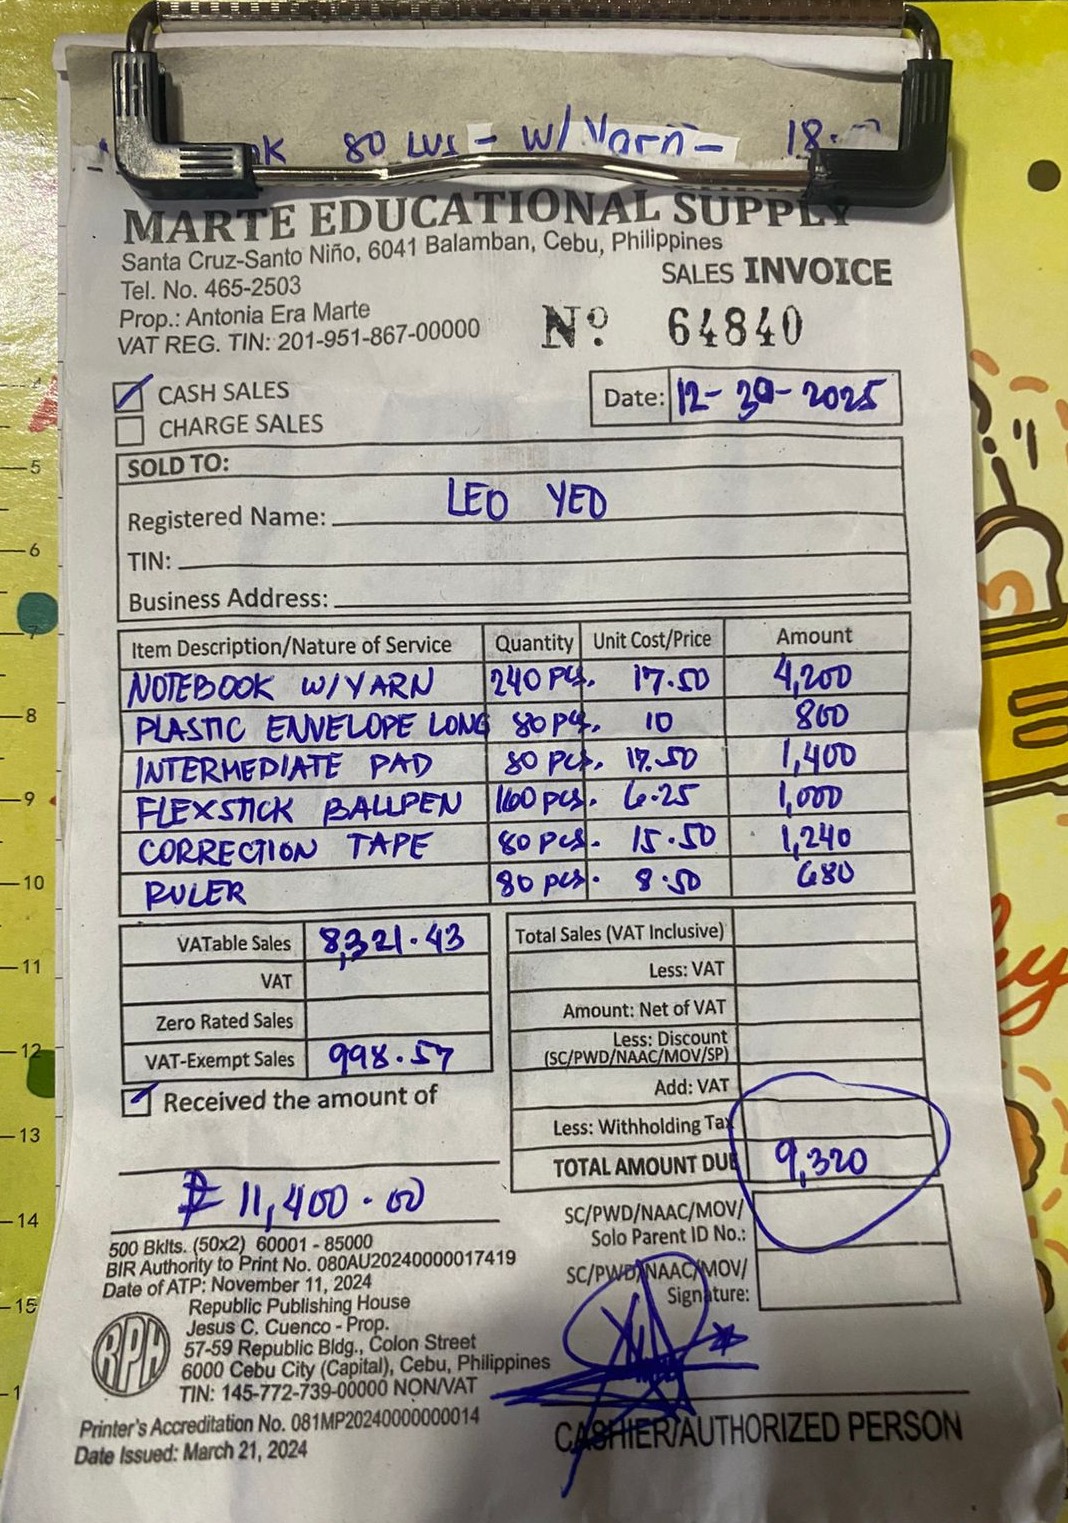 80 LVS - W/ Yarn - 18.
MARTE EDUCATIONAL SUPPLY
Santa Cruz-Santo Niño, 6041 Balamban, Cebu, Philippines
Tel. No. 465-2503
Prop.: Antonia Era Marte
VAT REG. TIN: 201-951-867-00000
SALES INVOICE
Nº. 64840
CASH SALES
CHARGE SALES
Date: 12-30-2025
SOLD TO:
Registered Name: LEO YEO
TIN:
Business Address:
Item Description/Nature of Service Quantity Unit Cost/Price Amount
NOTEBOOK W/YARN 240 pcs. 17.50 4,200
PLASTIC ENVELOPE LONG 80 pcs. 10 800
INTERMEDIATE PAD 80 pcs. 17.50 1,400
FLEXSTICK BALLPEN 160 pcs. 6.25 1,000
CORRECTION TAPE 80 pcs. 15.50 1,240
RULER 80 pcs. 8.50 680
VATable Sales 8,321.43
VAT
Zero Rated Sales
VAT-Exempt Sales 998.57
Received the amount of
₱ 11,400.00
Total Sales (VAT Inclusive)
Less: VAT
Amount: Net of VAT
Less: Discount
(SC/PWD/NAAC/MOV/SP)
Add: VAT
Less: Withholding Tax
TOTAL AMOUNT DUE 9,320
SC/PWD/NAAC/MOV/
Solo Parent ID No.:
SC/PWD/NAAC/MOV/
Signature:
500 Bklts. (50x2) 60001 - 85000
BIR Authority to Print No. 080AU20240000017419
Date of ATP: November 11, 2024
RPH
Republic Publishing House
Jesus C. Cuenco - Prop.
57-59 Republic Bldg., Colon Street
6000 Cebu City (Capital), Cebu, Philippines
TIN: 145-772-739-00000 NON/VAT
Printer's Accreditation No. 081MP20240000000014
Date Issued: March 21, 2024
CASHIER/AUTHORIZED PERSON
5
6
7
8
9
10
11
12
13
14
15